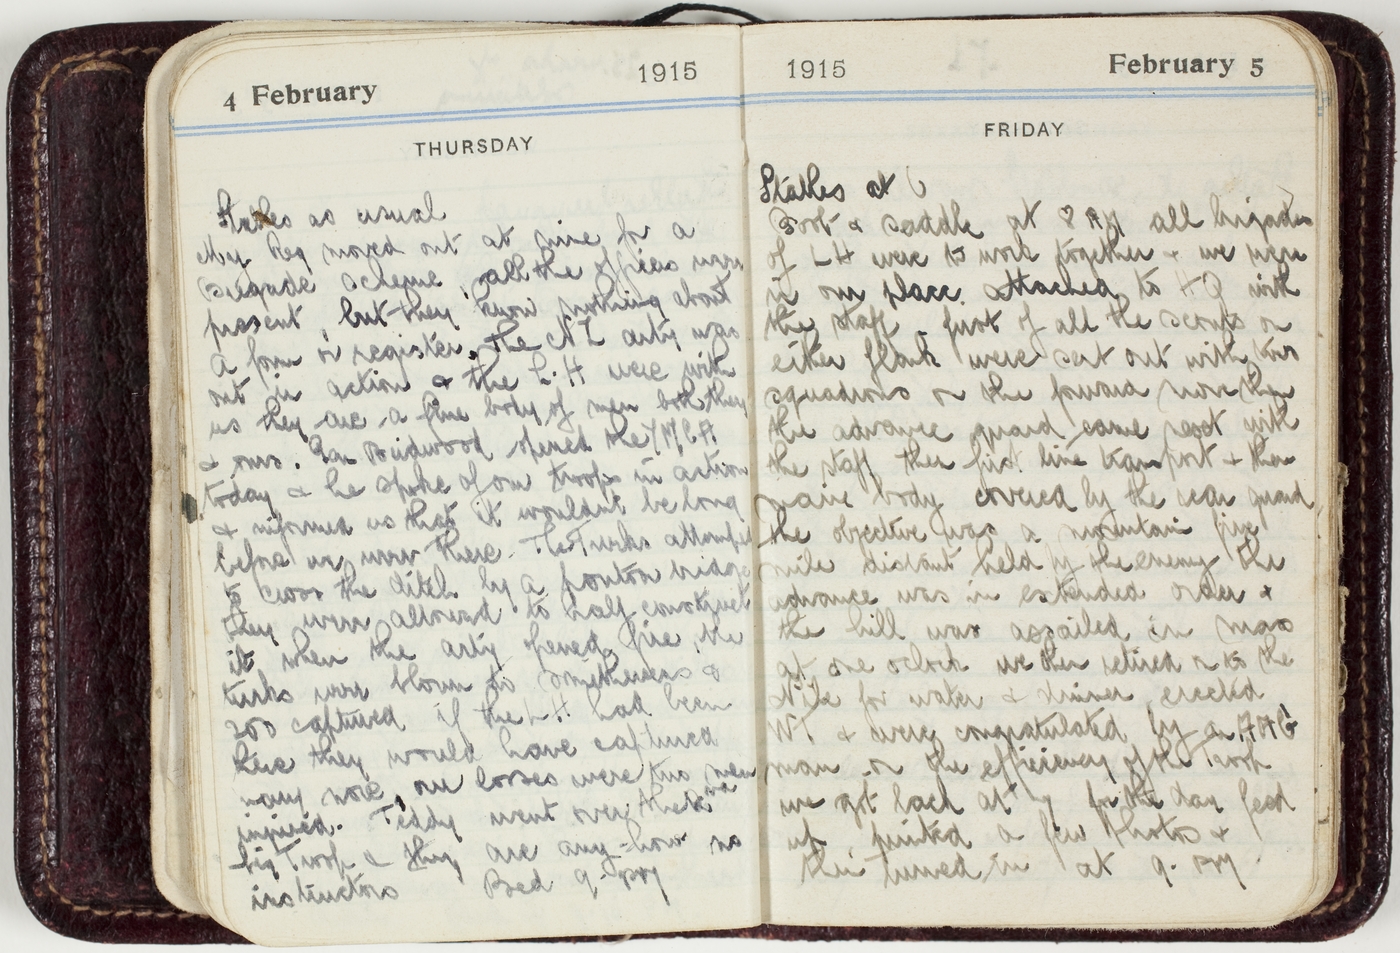 4 February 1915
THURSDAY
Stables as usual
My Reg moved out at nine for a
Brigade scheme, all the officers were
present, but they know nothing about
a form or register, the NZ arty was
out in action & the L.H were with
us they are a fine body of men both they
& ours. Gen Birdwood opened the YMCA
today & he spoke of our troops in action
& informed us that it wouldnt be long
before we were there. The Turks attempted
to cross the ditch by a pontoon bridge
they were allowed to half construct
it, when the arty opened fire, the
turks were blown to smithereens &
200 captured if the LH had been
here they would have captured
many more, our losses were two men
injured. Teddy went over there
big Troop & they are any-how no
instructors Bed 9. PM
1915 February 5
FRIDAY
Stables at 6
Boot & saddle at 8 AM all brigades
of LH were to work together & we were
in our place attached to HQ with
the staff, first of all the scouts on
either flank were sent out with two
squadrons on the forward move then
the advance guard came next with
the staff then first line transport & then
main body covered by the rear guard
the objective was a mountain five
mile distant held by the enemy the
advance was in extended order &
the hill was assailed in mass
at one oclock we then retired on to the
Nile for water & dinner, erected
WT & were congratulated by a
man on the efficiency of the work
we got back at for the day feed
up printed a few photos &
then turned in at 9. PM